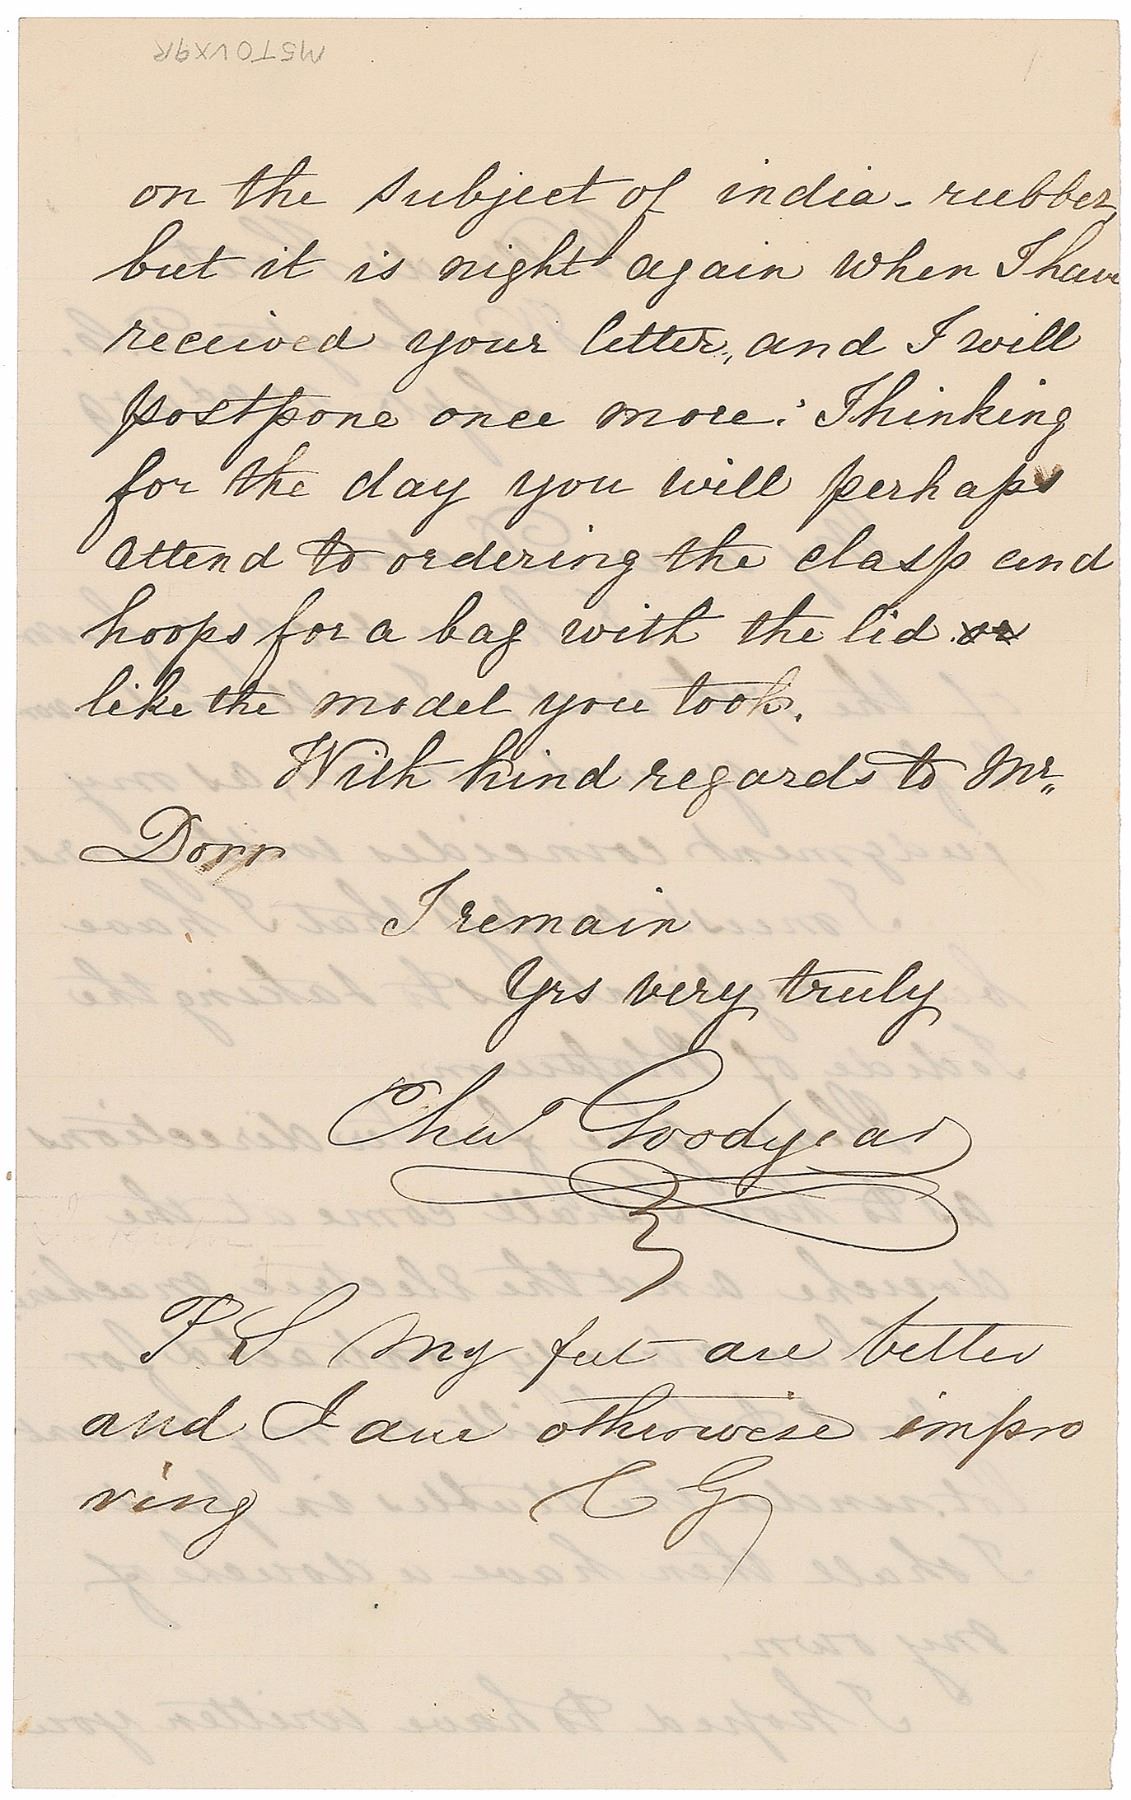 M5TOVX9R
on the subject of india-rubber,
but it is night again when I have
received your letter, and I will
postpone once more: Thinking
for the day you will perhaps
attend to ordering the clasp and
hoops for a bag with the lid
like the model you took.
With kind regards to Mr,,
Dorr
I remain
Yrs very truly
Chas Goodyear
P S My feet are better
and I am otherwise impro
ving C G